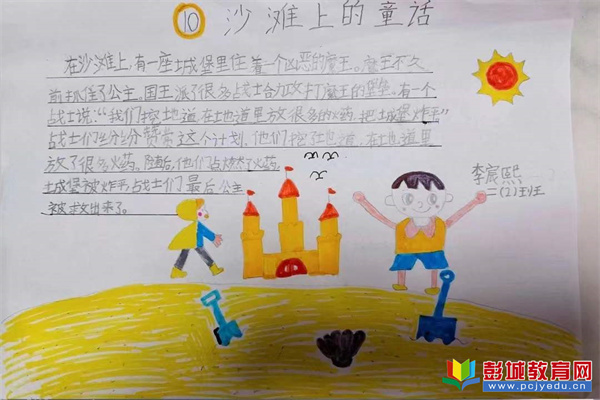 10 沙滩上的童话
在沙滩上,有一座城堡里住着一个凶恶的魔王。魔王不久
前抓住了公主。国王派了很多战士合力攻打魔王的堡垒。有一个
战士说:“我们挖地道,在地道里放很多的火药,把城堡炸平”
战士们纷纷赞赏这个计划。他们挖到地道,在地道里
放了很多火药。随后,他们点燃了火药。
城堡被炸平,战士们最后公主
被救出来了。
李宸熙
二(2)班
彭城教育网
www.pcjyedu.cn